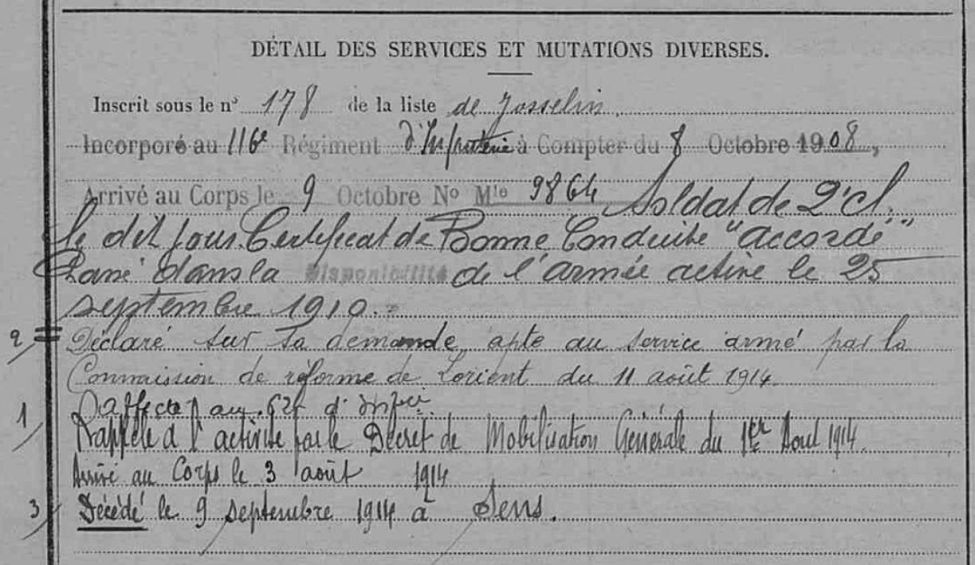 DÉTAIL DES SERVICES ET MUTATIONS DIVERSES.
Inscrit sous le n° 178 de la liste de Josselin.
Incorporé au 116e Régiment d'Infanterie à Compter du 8 Octobre 1908,
Arrivé au Corps le 9 Octobre No Mle 9864 Soldat de 2e cl.
le dit jour. Certificat de Bonne Conduite "accordé"
Passé dans la Disponibilité de l'armée active le 25
septembre 1910.=
2 Déclaré sur sa demande apte au service armé par la
Commission de réforme de Lorient du 11 août 1914.
affecté au 62e d'Infie
1 Rappelé à l'activité par le Décret de Mobilisation Générale du 1er Aout 1914.
Arrivé au Corps le 3 août 1914
3 Décédé le 9 septembre 1914 à Sens.